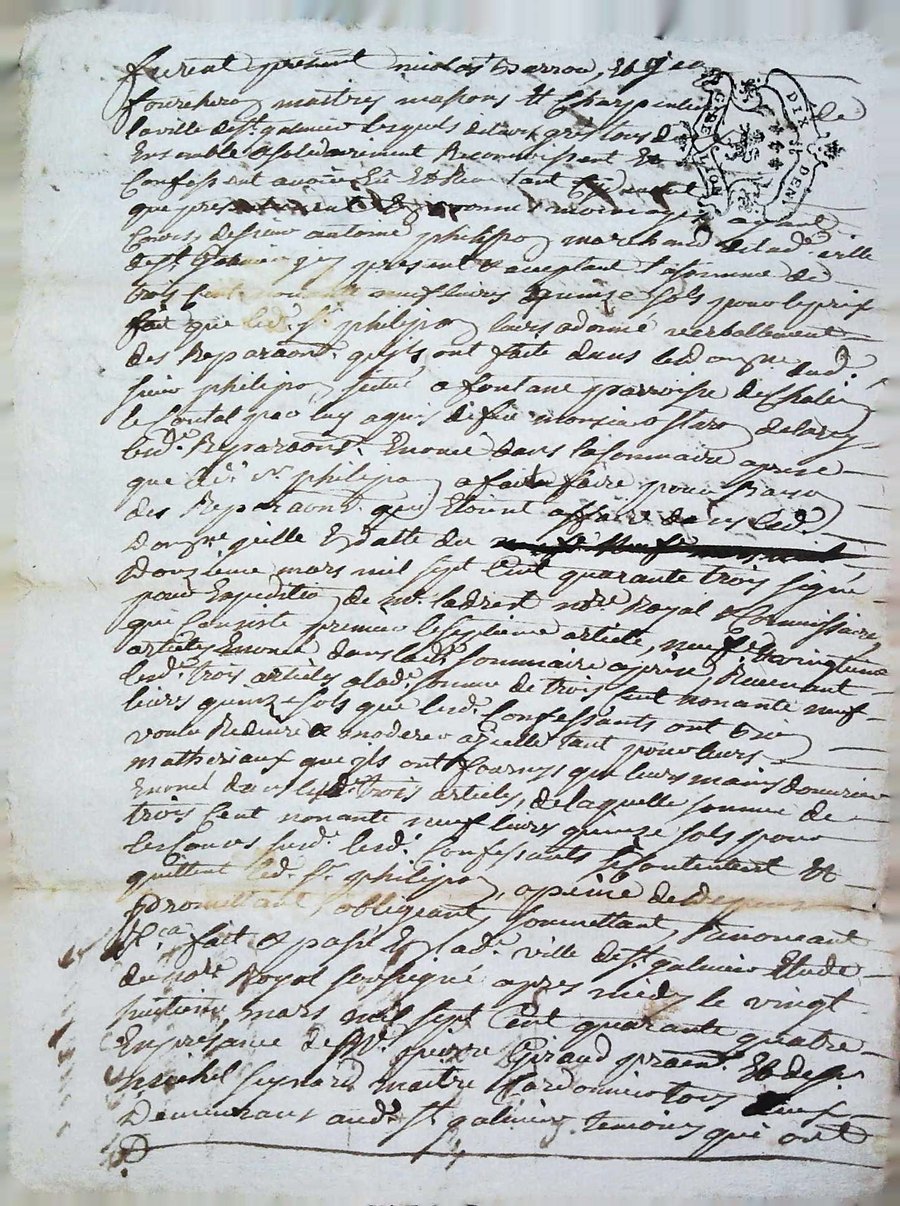 furent present nicolas Barrou, et
fourcheron maitres massons et Charpentiers de
la ville de st galmier lesquels de leurs gres tous deux
Ensemble et solidairement Reconnoissent et
Confessent avoir Eü et Reçu tant cy devant
que presentement En bonne monnoye ayant
Cours, de sieur antoine philipon marchand de lad. ville
de st galmier jcy present et aceptant la somme de
trois cent nonante neuf livres quinze sols pour le prix
fait que led. sr. philipon leurs a donné verballement
des Reparaons. qu'jls ont faite dans le domne. dud.
sieur philipon, situé a fontane parroisse de Chalin
le Contal par luy aquis de feu monsieur
lesd. Reparaons. Enoncé dans la sommaire aprise
que led. sr. philipon a fait faire pour Raison
des Reparaons. qui Etoient affaire dans led.
Domne. qu'elle Est datte du
Douzieme mars mil sept Cent quarante trois signé
pour Expedition de me. ladrest nore. Royal et Commissaire,
qui Consiste premier le septieme article, neuf et vingtieme
articles Enoncé dans lad. sommaire aprise, Revenant
lesd. trois articles a lad. somme de trois cent nonante neuf
livres quinze sols que lesd. Confessants ont bien
voulu Reduire et moderer a jcelle tant pour leurs
matheriaux que jls ont fournys que leurs mains d'ouvrier
Enoncé dans lesd. trois articles, de laquelle somme de
trois Cent nonante neuf livres quinze sols pour
les Causes susd. lesd. Confessants se Contentent et
quittent led. sr. philipon, a peine de Depens
promettant, obligeant, soumettant, Renonçant
&ca. fait et passé En lad. ville de st. galmier Etude
du nore. Royal soussigné apres midy le vingt
huitieme mars mil sept Cent quarante quatre
En presance de Me. pierre Giraud praen. Et de sr.
michel maitre Cardonnier tous Deux
Demeurant aud. st. galmier temoins qui ont